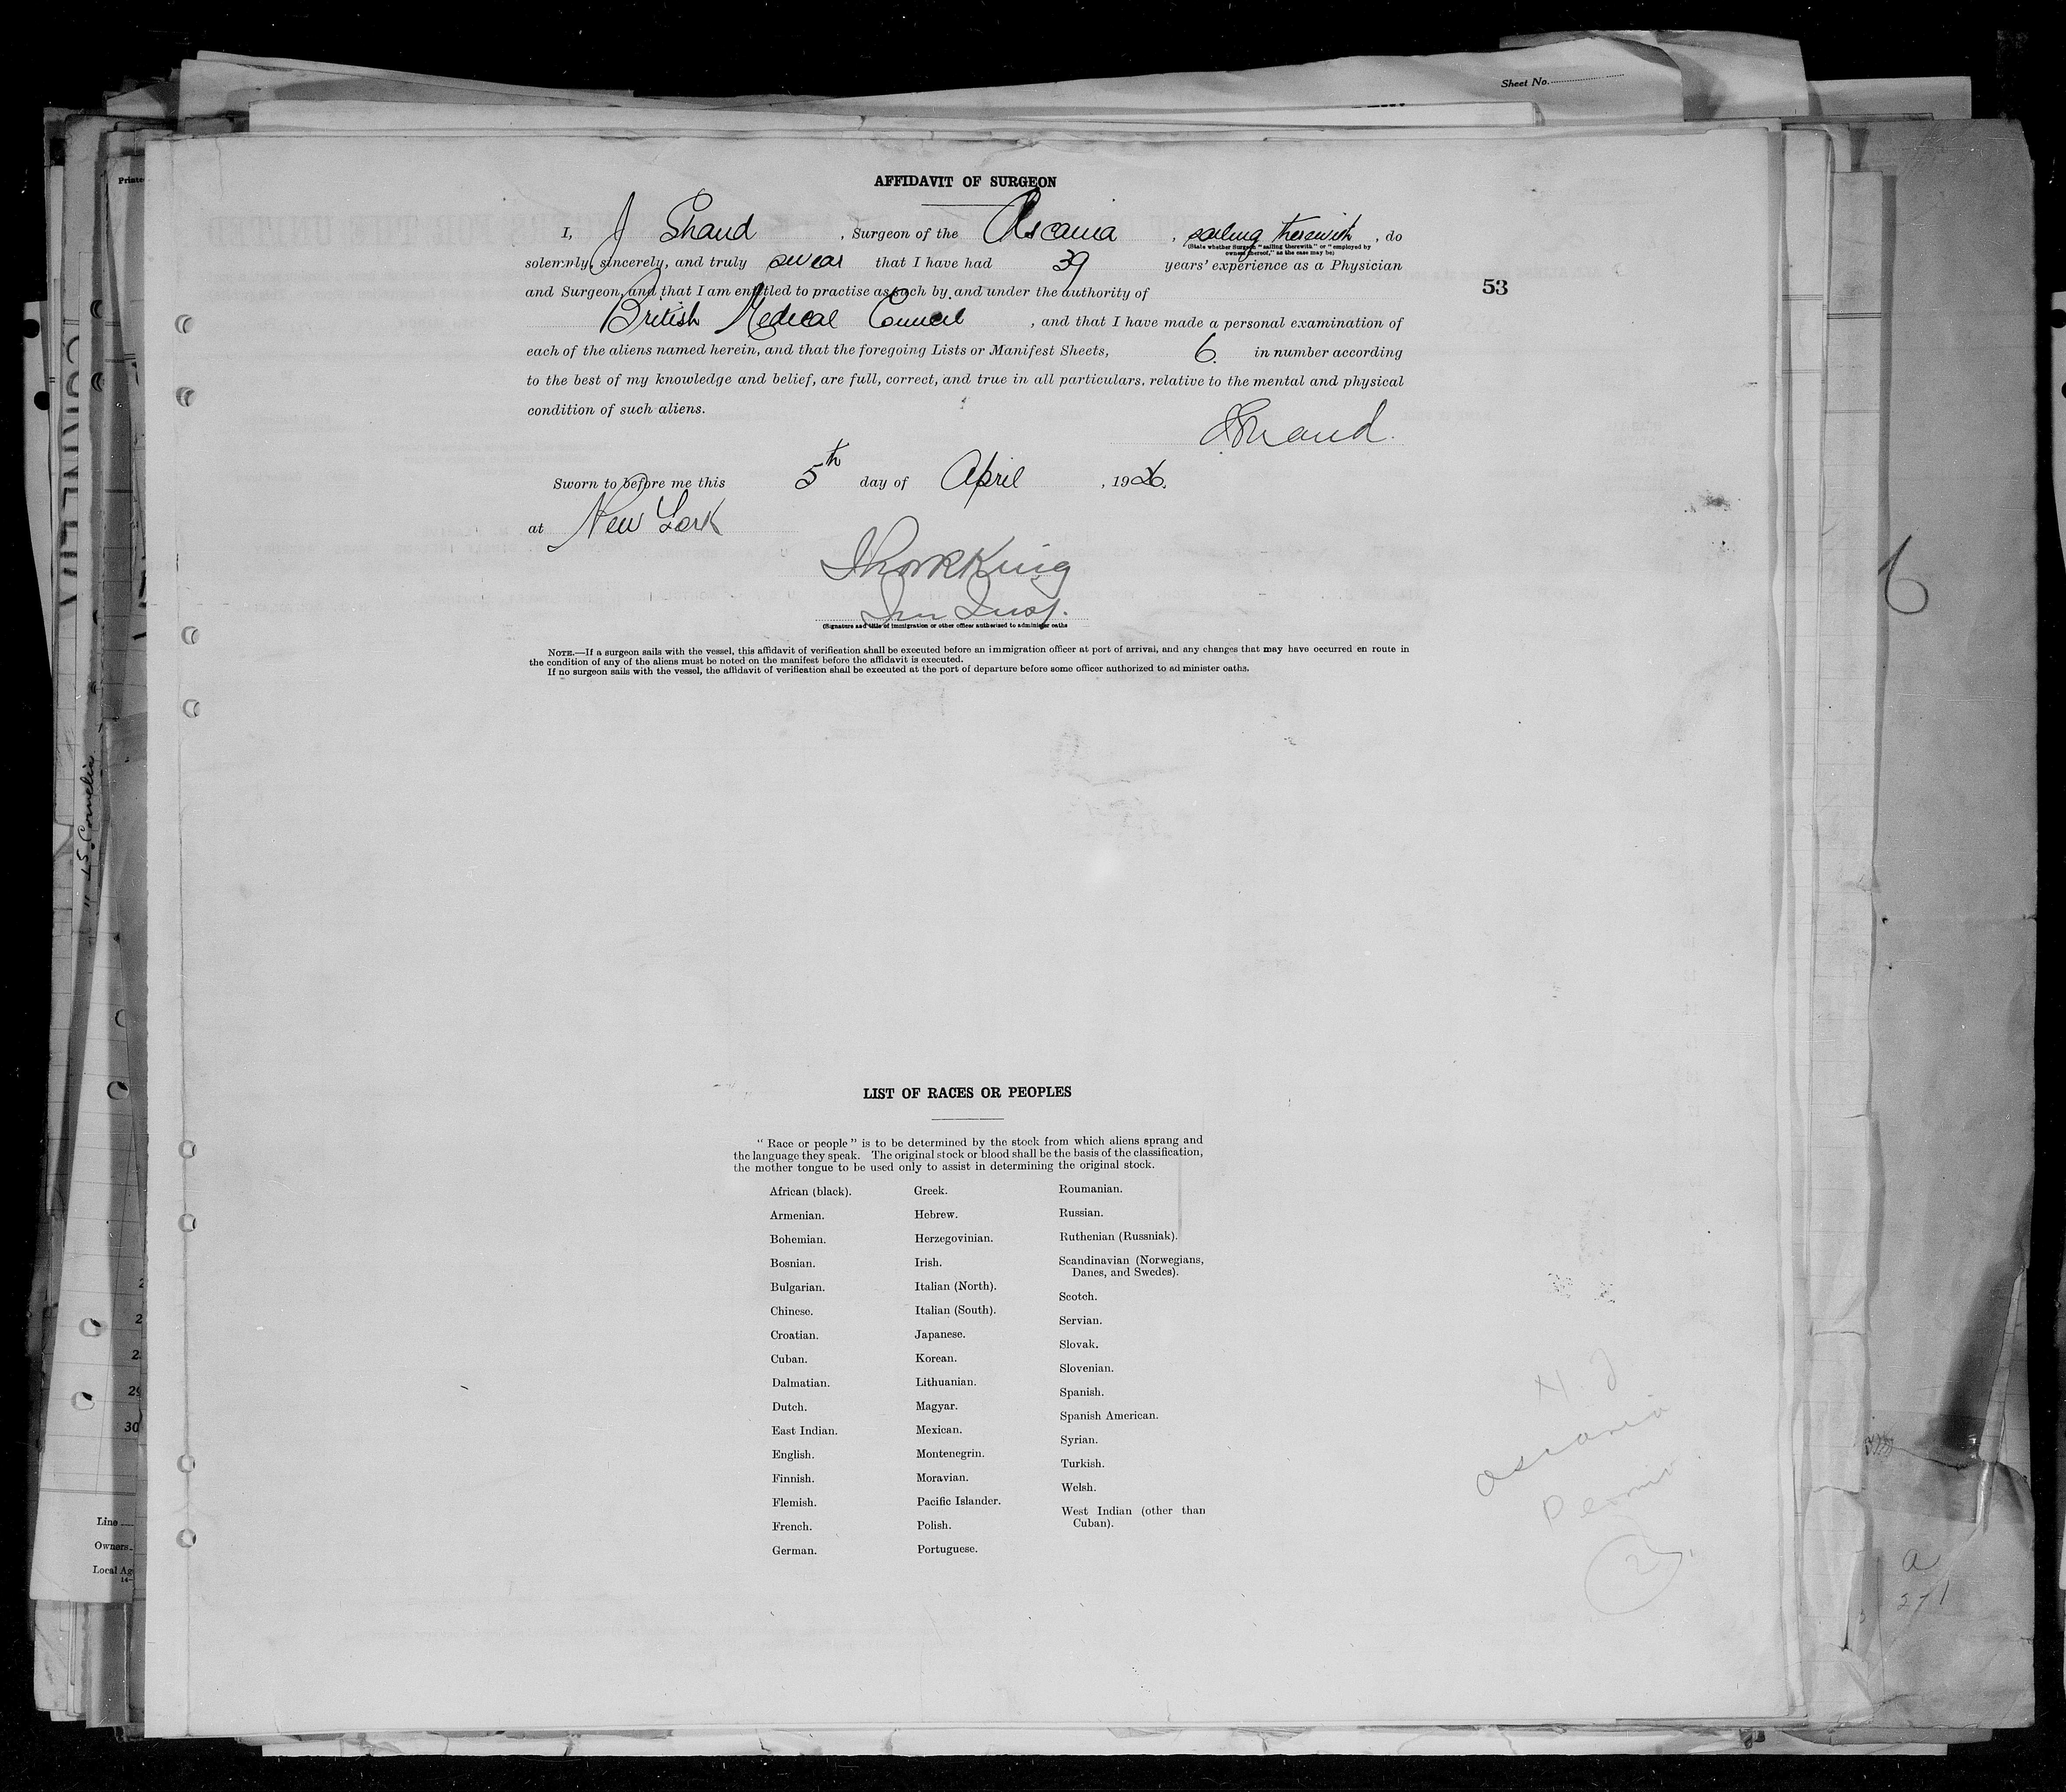 Sheet No.
Printe
AFFIDAVIT OF SURGEON
I, J Shand, Surgeon of the Ascania, sailing therewith, do
(State whether Surgeon "sailing therewith" or "employed by
owners thereof," as the case may be)
solemnly, sincerely, and truly swear that I have had 39 years' experience as a Physician
and Surgeon, and that I am entitled to practise as such by and under the authority of
53
British Medical Council, and that I have made a personal examination of
each of the aliens named herein, and that the foregoing Lists or Manifest Sheets, 6. in number according
to the best of my knowledge and belief, are full, correct, and true in all particulars, relative to the mental and physical
condition of such aliens.
J Shand.
Sworn to before me this 5th day of April, 1926.
at New York
King
Imm Insp.
(Signature and title of immigration or other officer authorized to administer oaths
6
NOTE.—If a surgeon sails with the vessel, this affidavit of verification shall be executed before an immigration officer at port of arrival, and any changes that may have occurred en route in
the condition of any of the aliens must be noted on the manifest before the affidavit is executed.
If no surgeon sails with the vessel, the affidavit of verification shall be executed at the port of departure before some officer authorized to ad minister oaths.
LIST OF RACES OR PEOPLES
" Race or people " is to be determined by the stock from which aliens sprang and
the language they speak. The original stock or blood shall be the basis of the classification,
the mother tongue to be used only to assist in determining the original stock.
African (black).
Armenian.
Bohemian.
Bosnian.
Bulgarian.
Chinese.
Croatian.
Cuban.
Dalmatian.
Dutch.
East Indian.
English.
Finnish.
Flemish.
French.
German.
Greek.
Hebrew.
Herzegovinian.
Irish.
Italian (North).
Italian (South).
Japanese.
Korean.
Lithuanian.
Magyar.
Mexican.
Montenegrin.
Moravian.
Pacific Islander.
Polish.
Portuguese.
Roumanian.
Russian.
Ruthenian (Russniak).
Scandinavian (Norwegians,
Danes, and Swedes).
Scotch.
Servian.
Slovak.
Slovenian.
Spanish.
Spanish American.
Syrian.
Turkish.
Welsh.
West Indian (other than
Cuban).
Ascania
2
a
271
29
30
Line
Owners
Local Ag